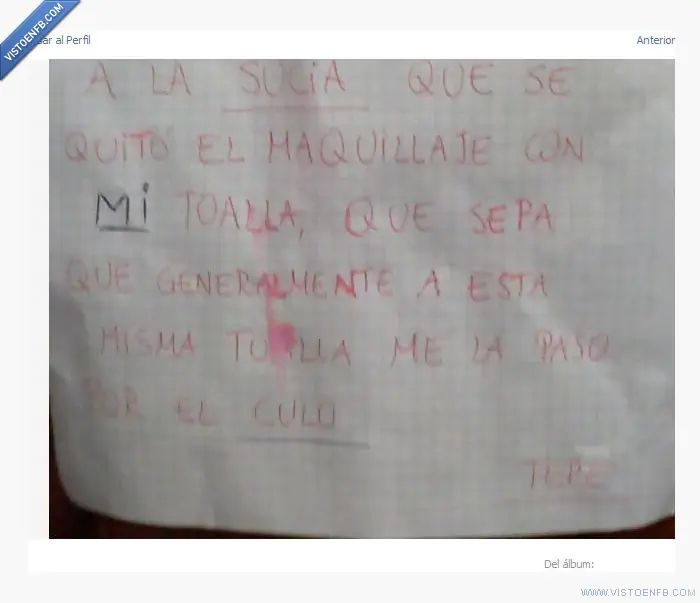 VISTOENFB.COM
ar al Perfil
Anterior
A LA SUCIA QUE SE
QUITÓ EL MAQUILLAJE CON
Mi TOALLA, QUE SEPA
QUE GENERALMENTE A ESTA
MISMA TOALLA ME LA PASO
POR EL CULO
TEPE
Del álbum:
WWW.VISTOENFB.COM